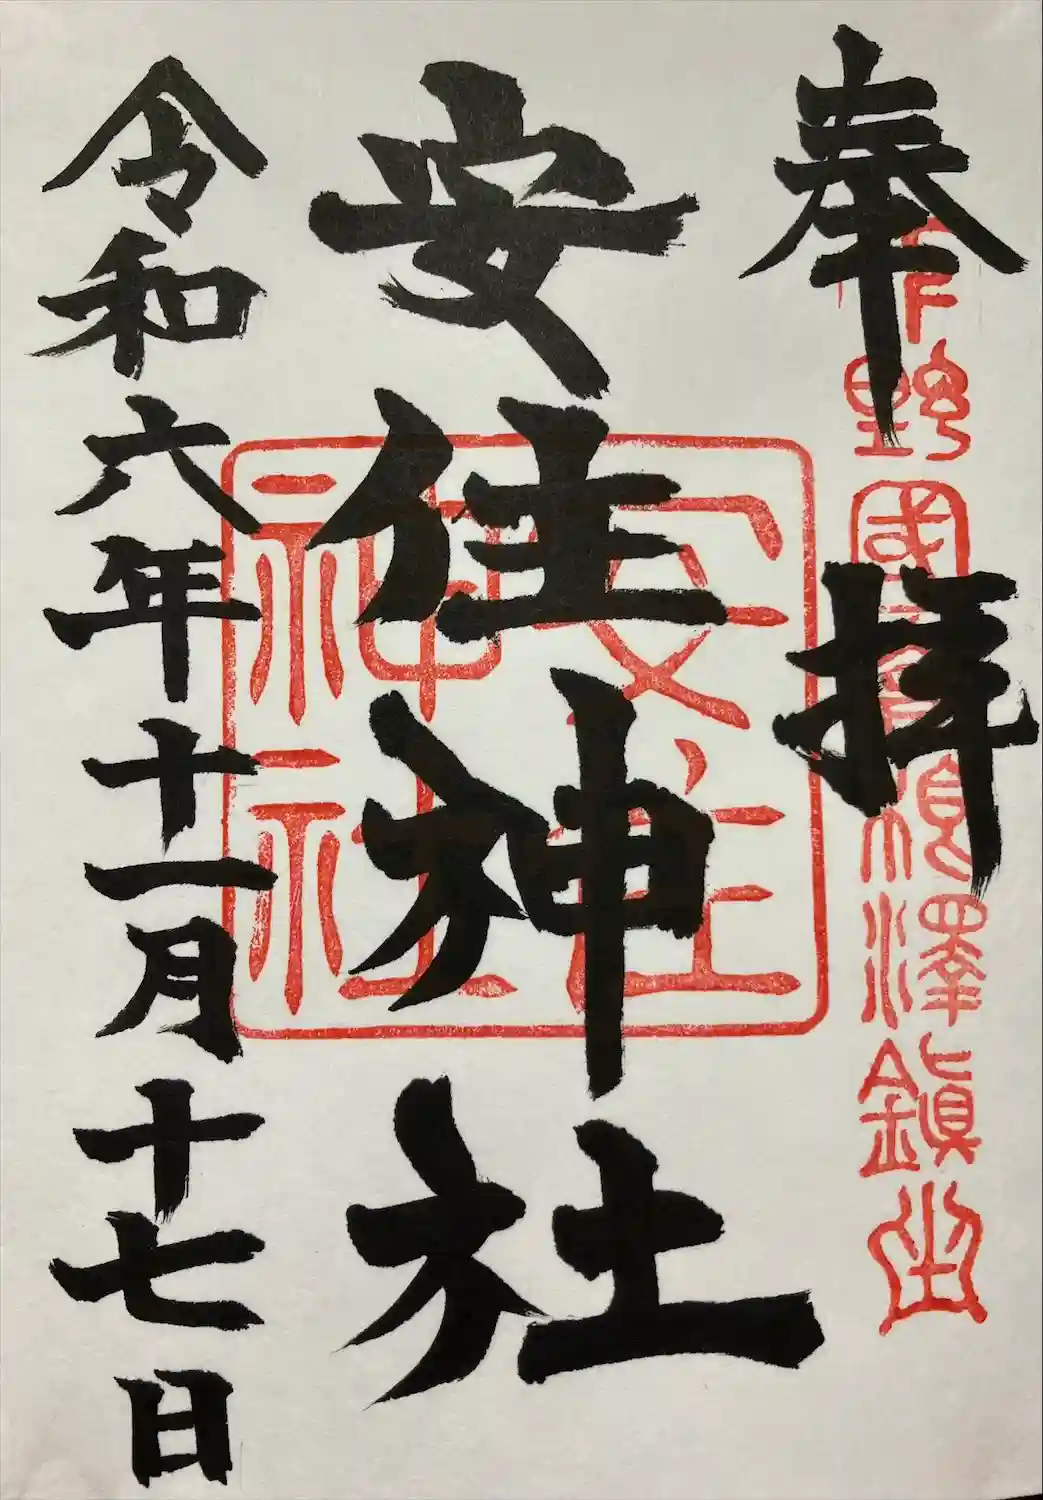 奉拝
下野國
澤鎮坐
安住神社
安住神社
令和六年十一月十七日